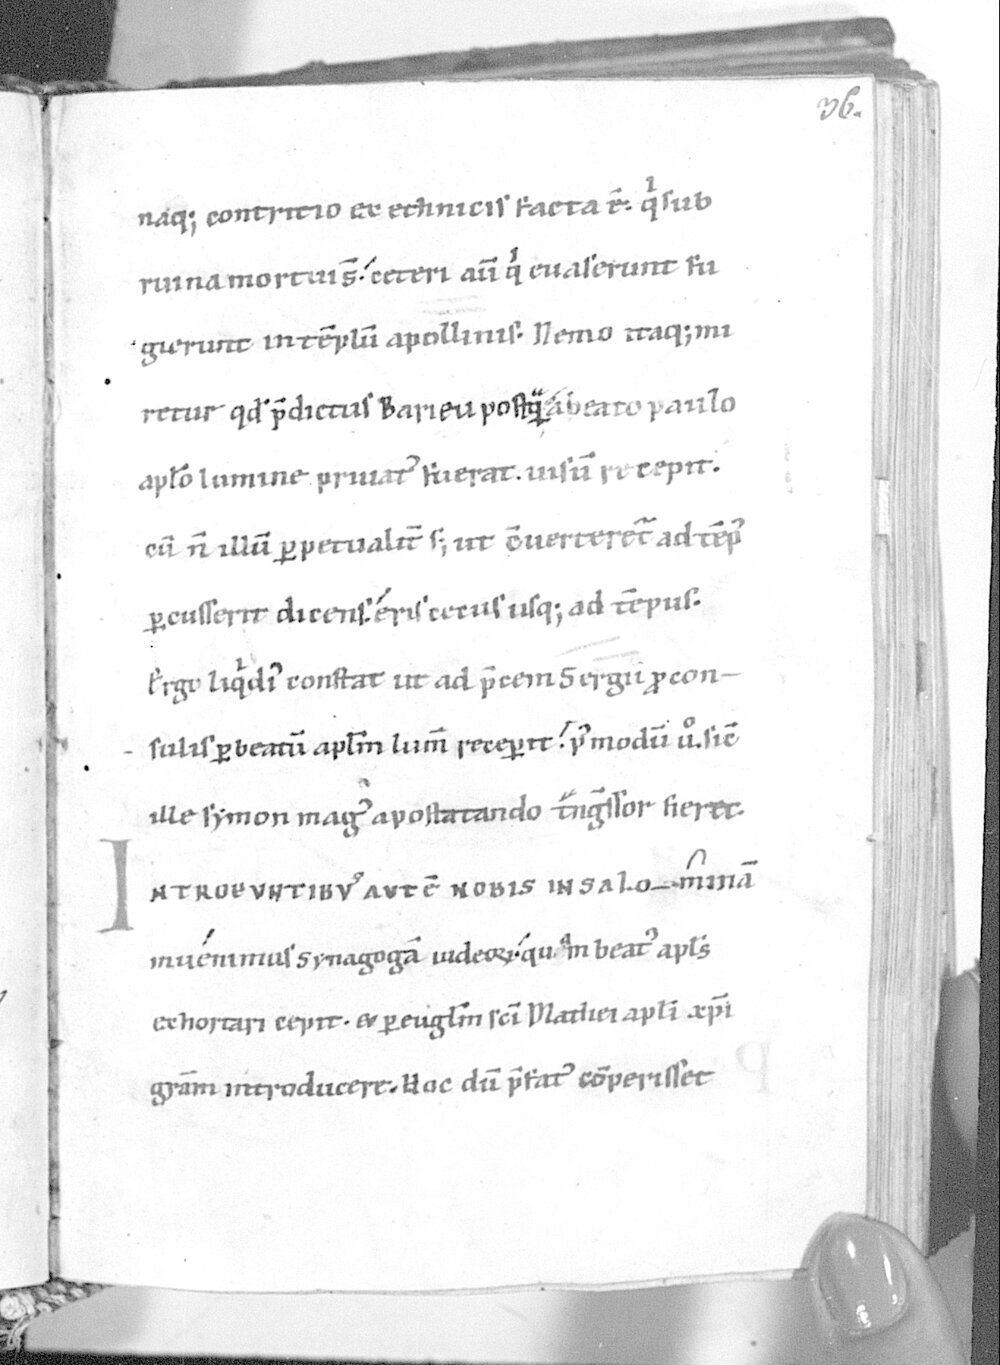 36.
naq; contritio ex ethnicis facta ē. qͥ sub
ruina mortui s̄. ceteri aū qͥ euaserunt fu
gierunt in tēplū apollinis. Nemo itaq; mi
retur qd p̄dictus Barieu postqᵃ a beato paulo
aplō lumine priuat᾽ fuerat. uisū recepit.
cū n̄ illū ꝑpetualit̄ s; ut ōuerteret᷑ ad tēp᾽
ꝑcusserit dicens. éris cecus usq; ad tēpus.
Ergo liqͥd᾽ constat ut ad p̄cem Sergii ꝓcon—
sulis ꝑ beatū aplm̄ lum̄ receperit. p᾽ modū uº. sic̄
ille symon mag᾽ apostatando t̄nḡssor fieret.
INTROEVNTIBV᾽ AVTĒ NOBIS IN SALO—minā
inuénimus synagogā iudeoꝝ. quam beat᾽ apls̄
exhortari cepit. & ꝑ euglm̄ scī Mathei aplī xp̄i
gram̄ introducere. Hoc dū p̄fat᾽ cōperisset